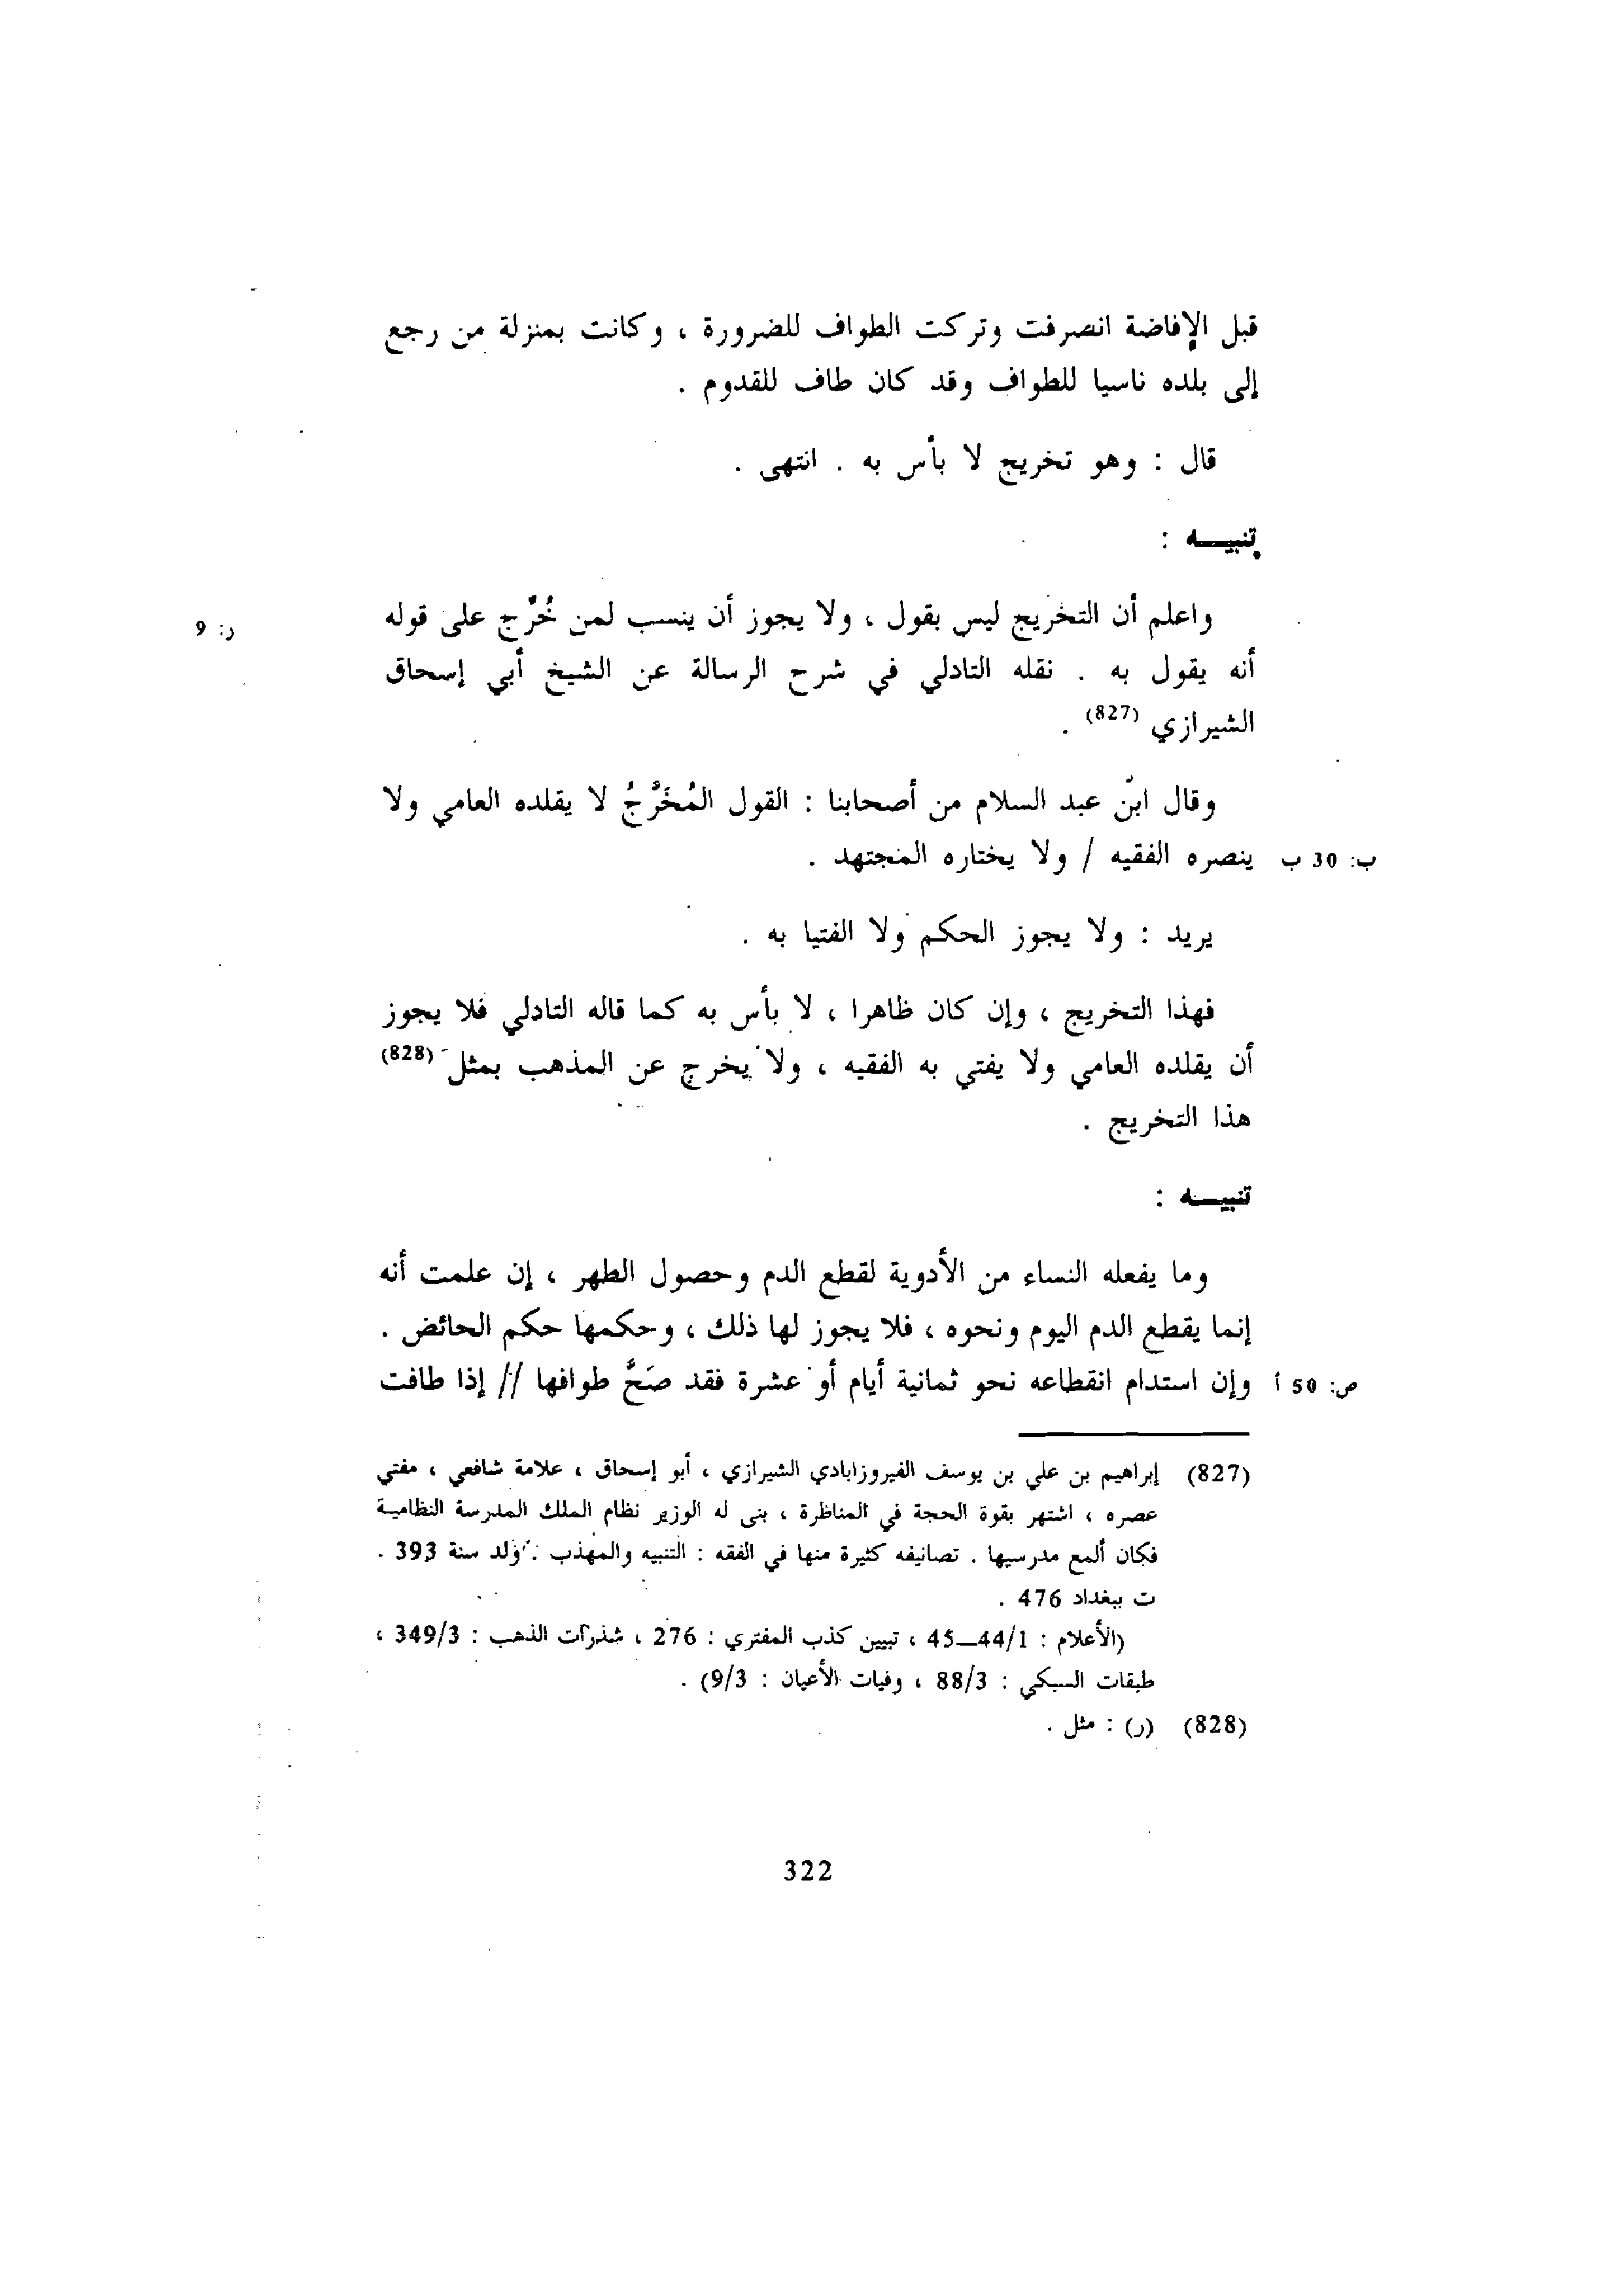 قبل الإفاضة انصرفت وتركت الطواف للضرورة ، وكانت بمنزلة من رجع
إلى بلده ناسيا للطواف وقد كان طاف للقدوم .
قال : وهو تخريج لا بأس به . انتهى .
تنبيـــه :
واعلم أن التخريج ليس بقول ، ولا يجوز أن ينسب لمن خُرِّج على قوله
ر: 9
أنه يقول به . نقله التادلي في شرح الرسالة عن الشيخ أبي إسحاق
الشيرازي (827) .
وقال ابن عبد السلام من أصحابنا : القول المُخَرَّجُ لا يقلده العامي ولا
ب: 30 ب ينصره الفقيه / ولا يختاره المجتهد .
يريد : ولا يجوز الحكم ولا الفتيا به .
فهذا التخريج ، وإن كان ظاهرا ، لا بأس به كما قاله التادلي فلا يجوز
أن يقلده العامي ولا يفتي به الفقيه ، ولا يخرج عن المذهب بمثل (828)
هذا التخريج .
تنبيـــه :
وما يفعله النساء من الأدوية لقطع الدم وحصول الطهر ، إن علمت أنه
إنما يقطع الدم اليوم ونحوه ، فلا يجوز لها ذلك ، وحكمها حكم الحائض .
ص: 50 أ وإن استدام انقطاعه نحو ثمانية أيام أو عشرة فقد صَحَّ طوافها // إذا طافت
(827) إبراهيم بن علي بن يوسف الفيروزابادي الشيرازي ، أبو إسحاق ، علامة شافعي ، مفتي
عصره ، اشتهر بقوة الحجة في المناظرة ، بنى له الوزير نظام الملك المدرسة النظامية
فكان ألمع مدرسيها . تصانيفه كثيرة منها في الفقه : التنبيه والمهذب . ولد سنة 393 .
ت ببغداد 476 .
(الأعلام : 44/1—45 ، تبيين كذب المفتري : 276 ، شذرات الذهب : 349/3 ،
طبقات السبكي : 88/3 ، وفيات الأعيان : 9/3) .
(828) (ر) : مثل .
322